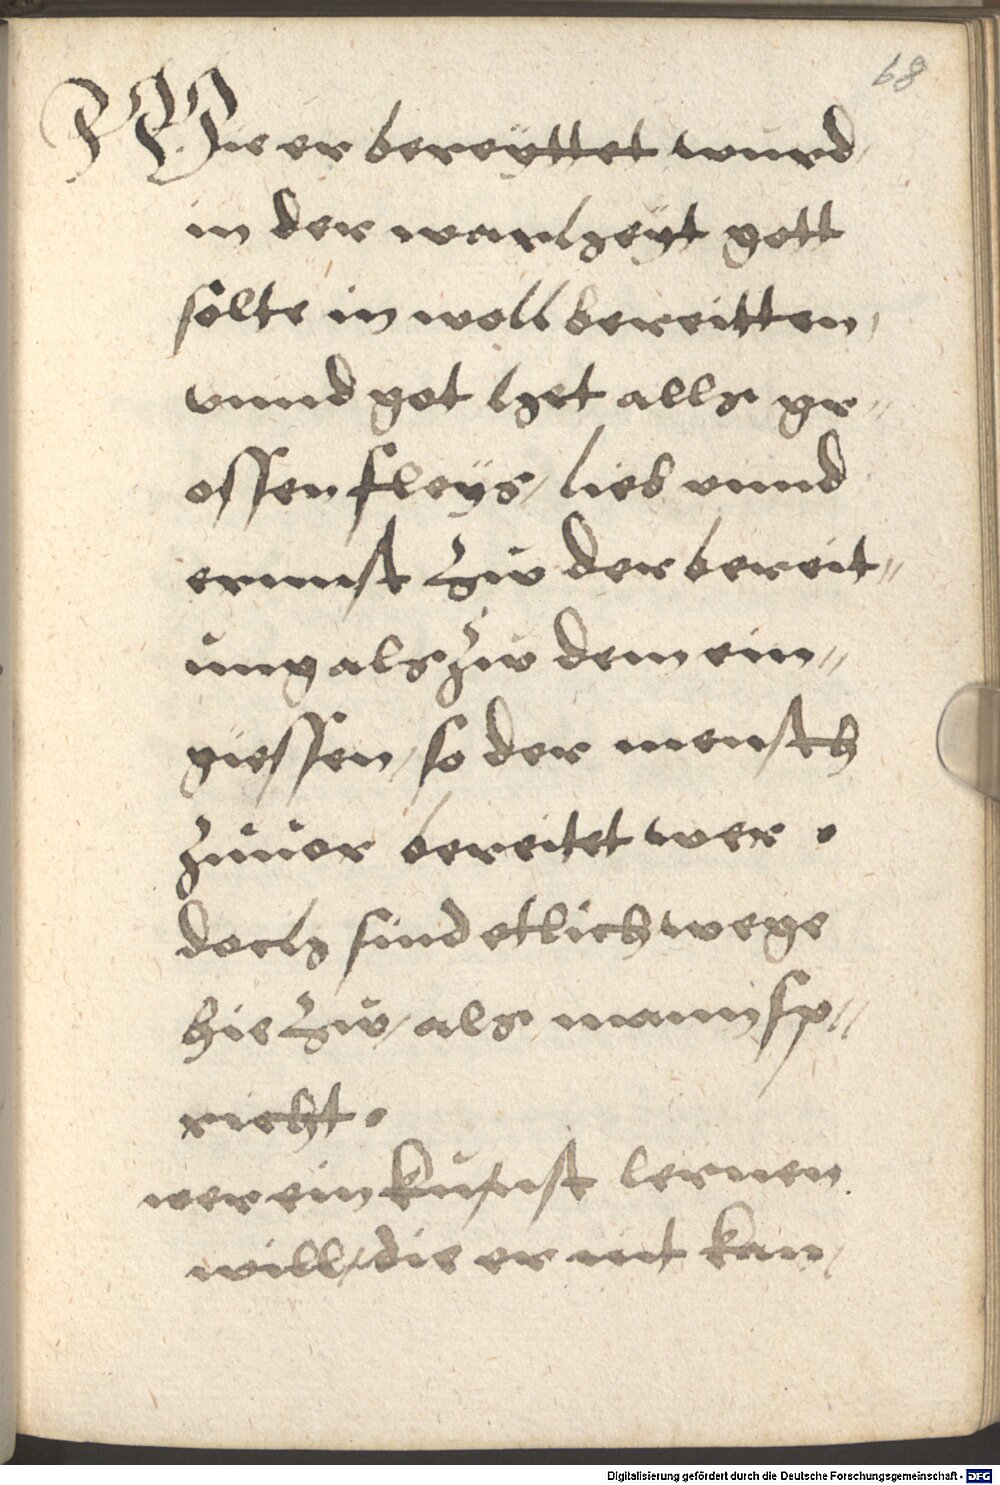 68
Wie er bereÿttet wurd
in der warheyt gott
solte in woll bereitten,
vnnd got het alls gr=
ossen fleÿs, lieb vnnd
ernnst Zů der bereit=
ung als zů dem ein=
giessen, so der mensch
zuuor bereitet wer •
doch sind etlich wege
hie Zů, als mann sp=
richt •
wer ein kunst lernen
will, die er nit kan,
Digitalisierung gefördert durch die Deutsche Forschungsgemeinschaft - DFG